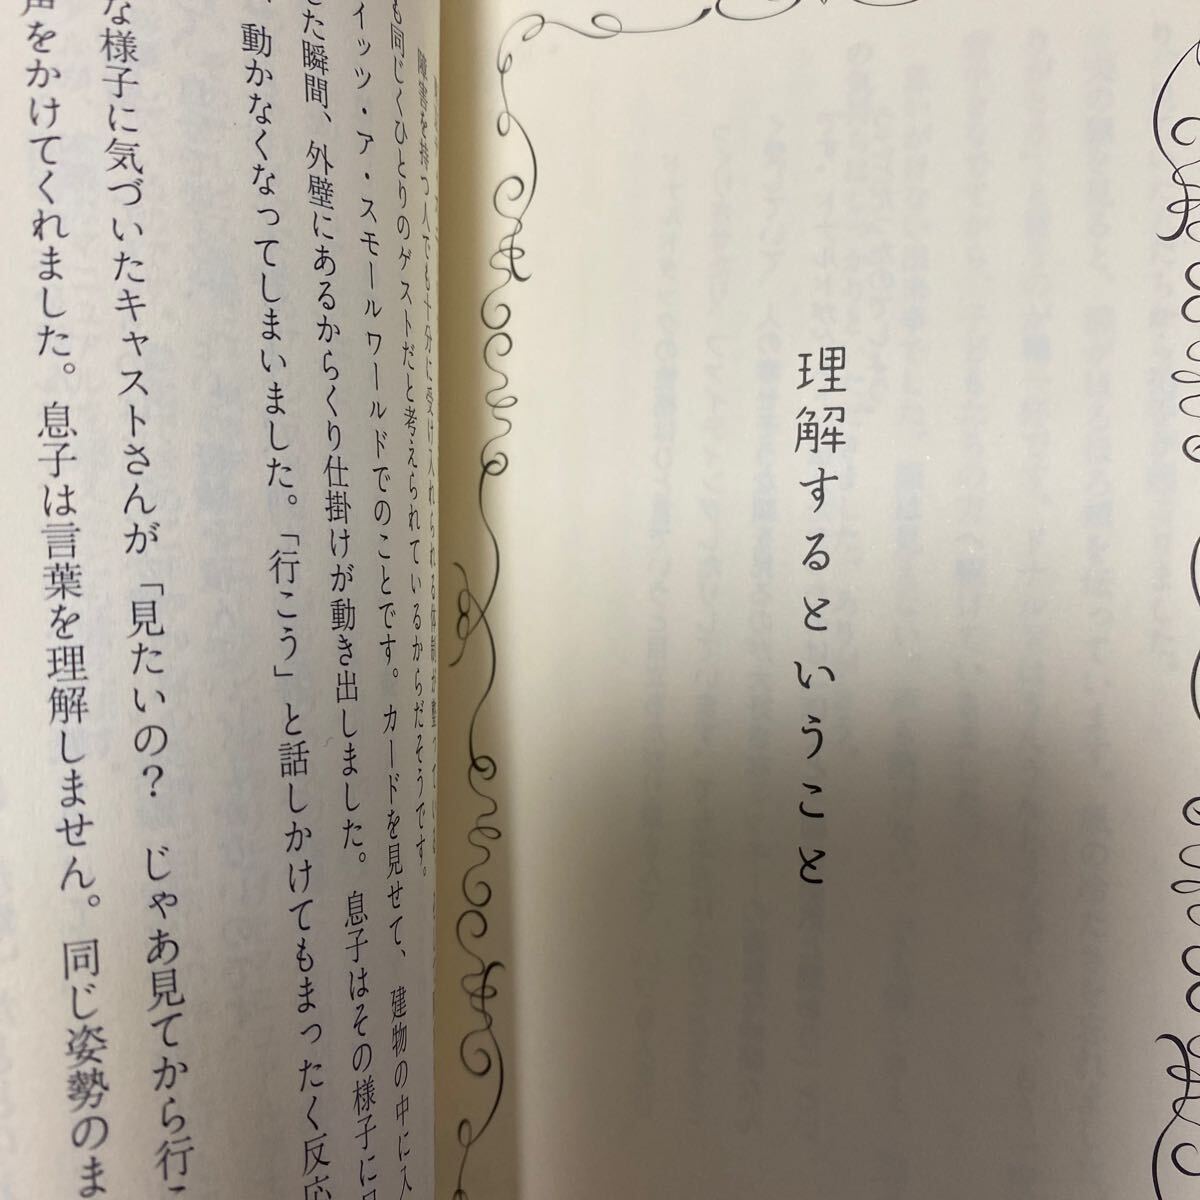 理解するということ
障害を持つ人でも十分に受け入れられる体制が整っている
も同じくひとりのゲストだと考えられているからだそうです。
イッツ・ア・スモールワールドでのことです。カードを見せて、建物の中に入
した瞬間、外壁にあるからくり仕掛けが動き出しました。息子はその様子に
動かなくなってしまいました。「行こう」と話しかけてもまったく反応
な様子に気づいたキャストさんが「見たいの? じゃあ見てから行こ
声をかけてくれました。息子は言葉を理解しません。同じ姿勢のま